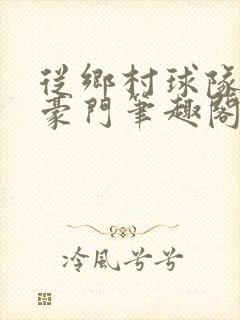 從鄉村球隊
豪門筆趣閣
冷風兮兮